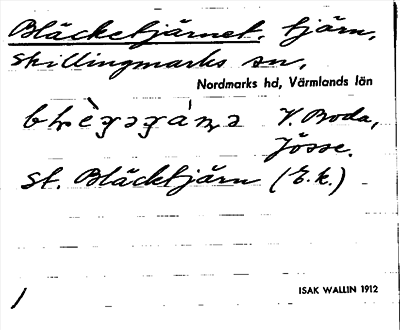 Bläcketjärnet, tjärn,
Skillingmarks sn,
Nordmarks hd, Värmlands län
V. Boda,
Jösse.
St. Bläcktjärn (E.k.)
ISAK WALLIN 1912